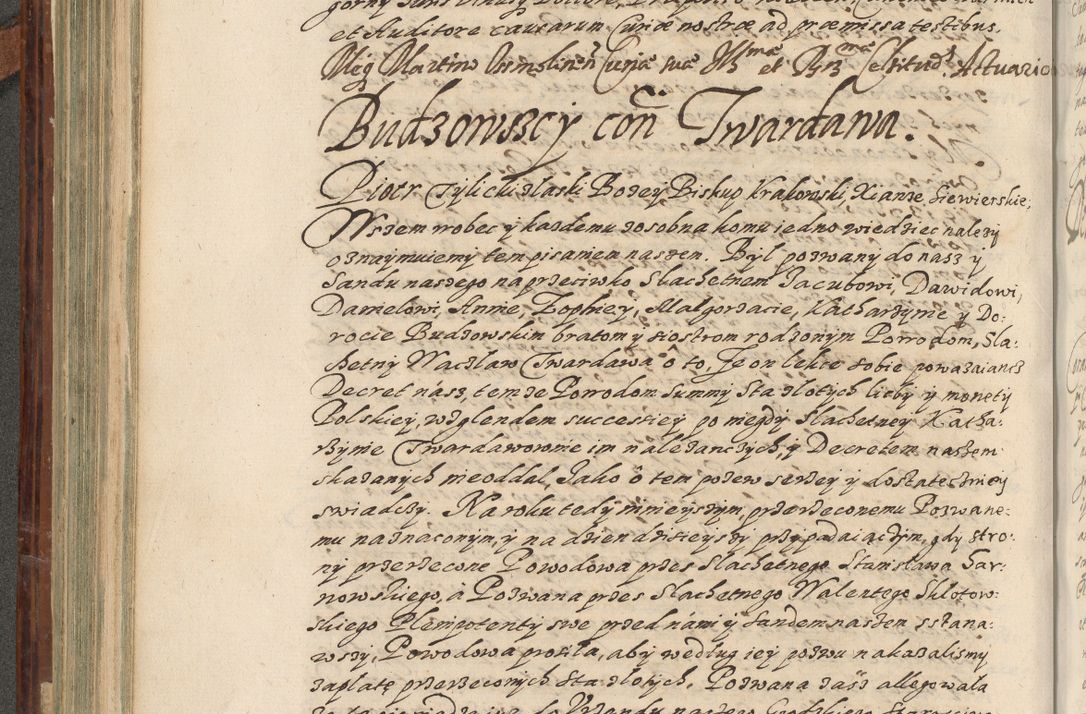 et Auditore causarum Curiæ nostræ ad præmissa testibus.
Budzowszcy con Twardawa.
Piotr Tylicki z łaski Bozey Biskup Krakowski, Xianze Siewierskie,
Wszem wobec y kazdemu zosobna komu iedno wiedziec nalezy
oznaymuiemy tem pisaniem naszem. Był pozwany do nasz y
Sandu naszego naprzeciwko Slachetnem Jacubowi, Dawidowi,
Danielowi, Annie, Zophiey, Małgorzacie, Katharzynie y Do:
rocie Budzowskim bratom y siostrom rodzonym Powodom, Sla:
chetny Waczław Twardawa o to, Je on lekce sobie powazaiancz
Decret nász, temze Powodom Summy sta zlotych liczby y monety
Polskiey, wzglendem successiey po niegdy Slachetney Katha:
rzynie Twardawownie im należanczych, y Decretem naszem
skazanych nieoddal, Jako o tem pozew szerzey y dostateczniey
swiadczy. Na roku tedy mnieyszym, przerzeconemu Pozwane:
mu naznaconym, y na dzien dzisieyszy przypadaiaczym, gdy stro:
ny przerzecone Powodowa przes Slachetnego Stanisława Sar:
nowskiego, á Pozwana przes Slachetnego Walentego Skłotow:
skiego Plenipotenty swe przed námi y Sandem naszem sstana:
wszy, Powodowa prosila, aby według iey pozwu nakazalismy
zapłatę przerzeconych sta zlotych. Pozwana zász allegowala